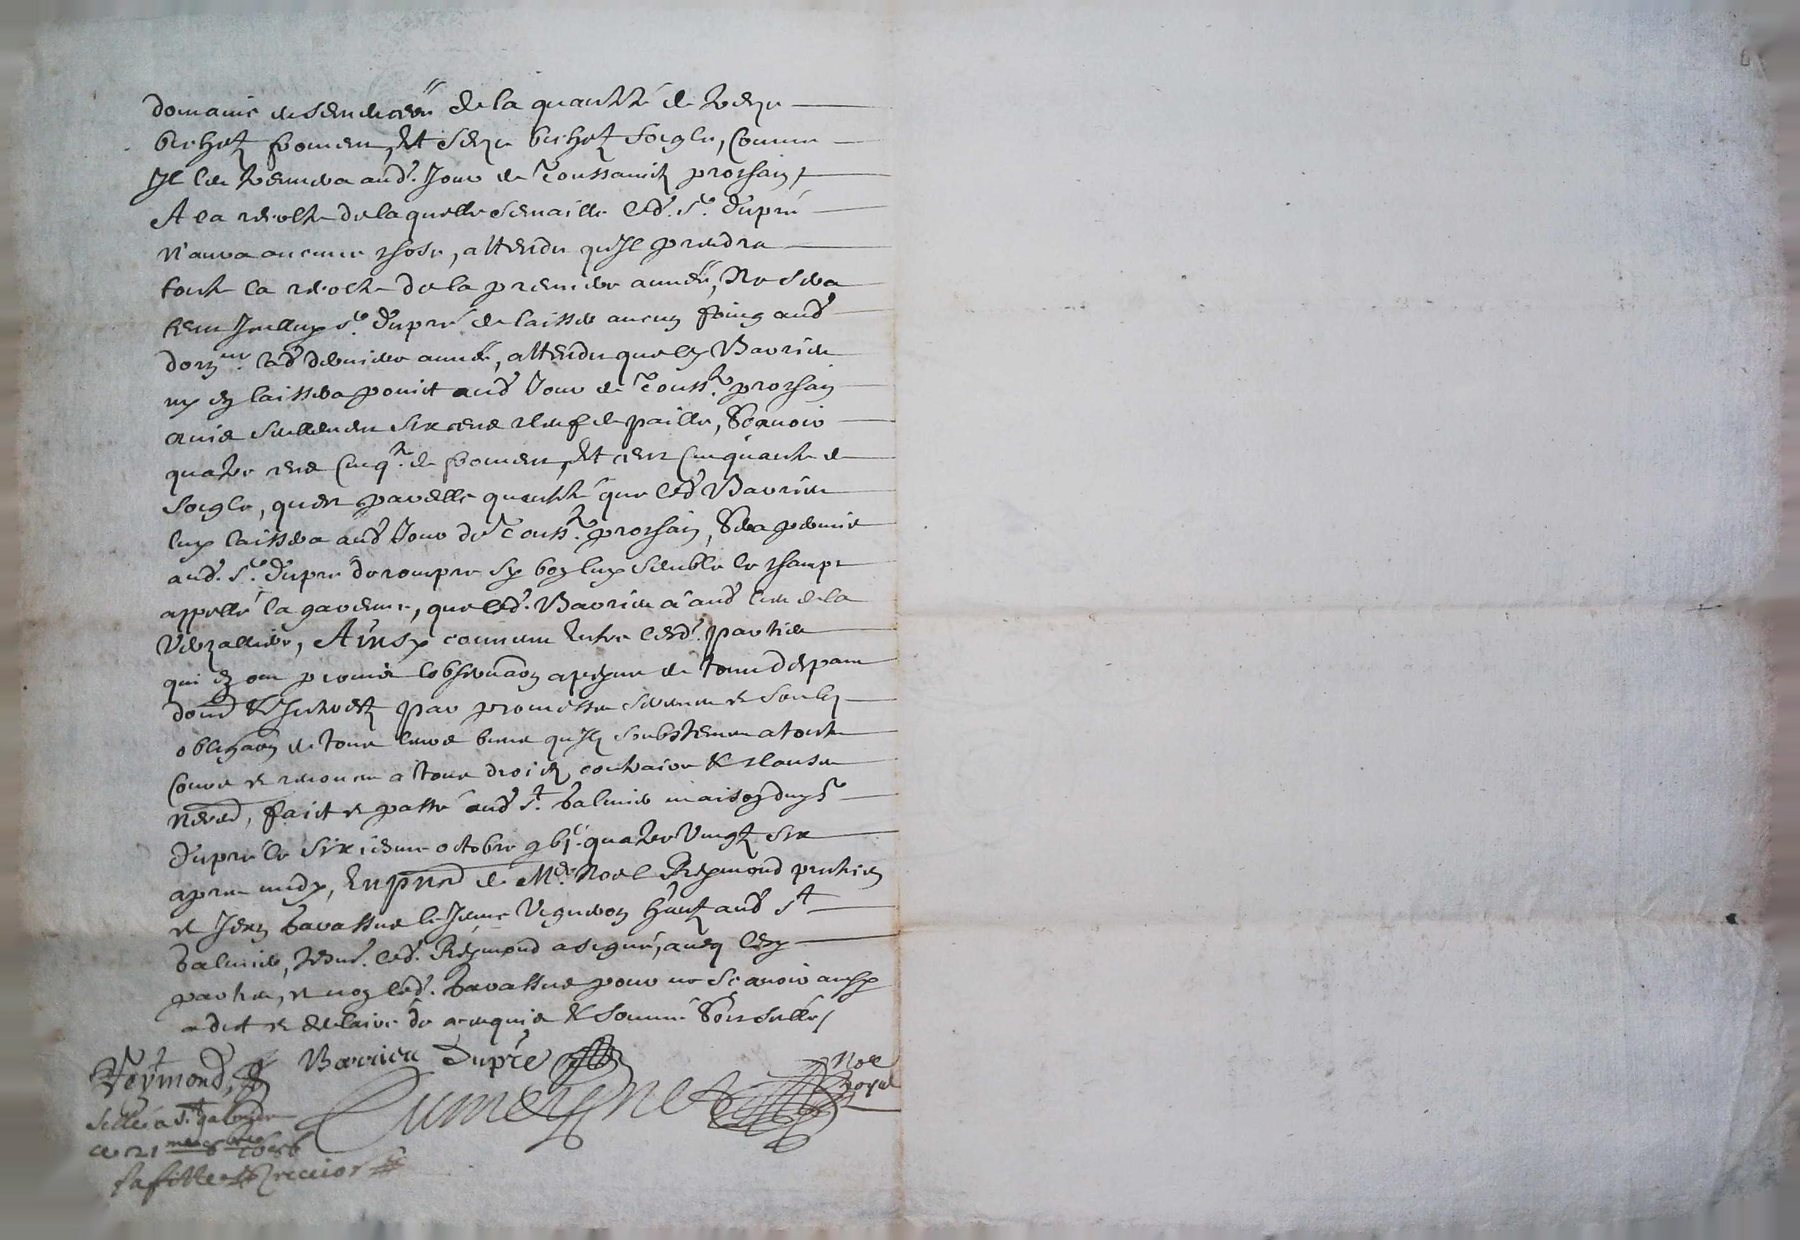 domaine de de la quantité de treze
bichetz froment, Et seze bichetz seigle, Comme
Il les trouvera aud. Jour de Toussainctz prochain,
A la récolte de laquelle semaille led. Sr. Dupré
n'aura aucune chose, attendu qu'Il prendra
toute la récolte de la premiere année, Ne sera
tenu Icelluy Sr. Dupré de laisser aucun foing aud
dom.ne lad derniere année, attendu que led Barrier
ny en laissera point aud Jour de Touss. prochain
mais seullement six cens de paille, Scavoir
quatre cens Cinq.te de froment, Et cent Cinquante de
seigle, qu'est pareille quantité que led Barrier
luy laissera aud Jour de Touss. prochain, Sera permis
aud. Sr. Dupré de rompre sy bon luy semble le champt
appellé la garenne, que led. Barrier a aud lieu de la
Verzallier, Ainsy convenu entre lesd. parties
qui en ont promis lobservaon a peyne de tous despans
dom̃ Et Interestz par promesse serment et soubz
obligaon de tous leurs biens qu'Ilz soubzmettent a toutes
Cours et renoncent a tous droictz contraires Et clauses
necess, faict et passé aud St. Galmier maison dud Sr
Dupré le sixiesme octobre gbjc quatre vingtz six
apres midy, En pñce de Me. Noel Reymond praticien
et Jean Tavassue le Jeune Vigneron habt aud St
Galmier, tesm. led. Reymond a signé, avecq lesd
parties, et non led. Tavassue pour ne scavoir ainsy
a dict et declairé de ce enquis Et sommé Soit scellé /
Reymond, Barrier Dupré
Dumeygnet Noe Royal
Scellé a St galmier
ce 21 me 8bre 1686